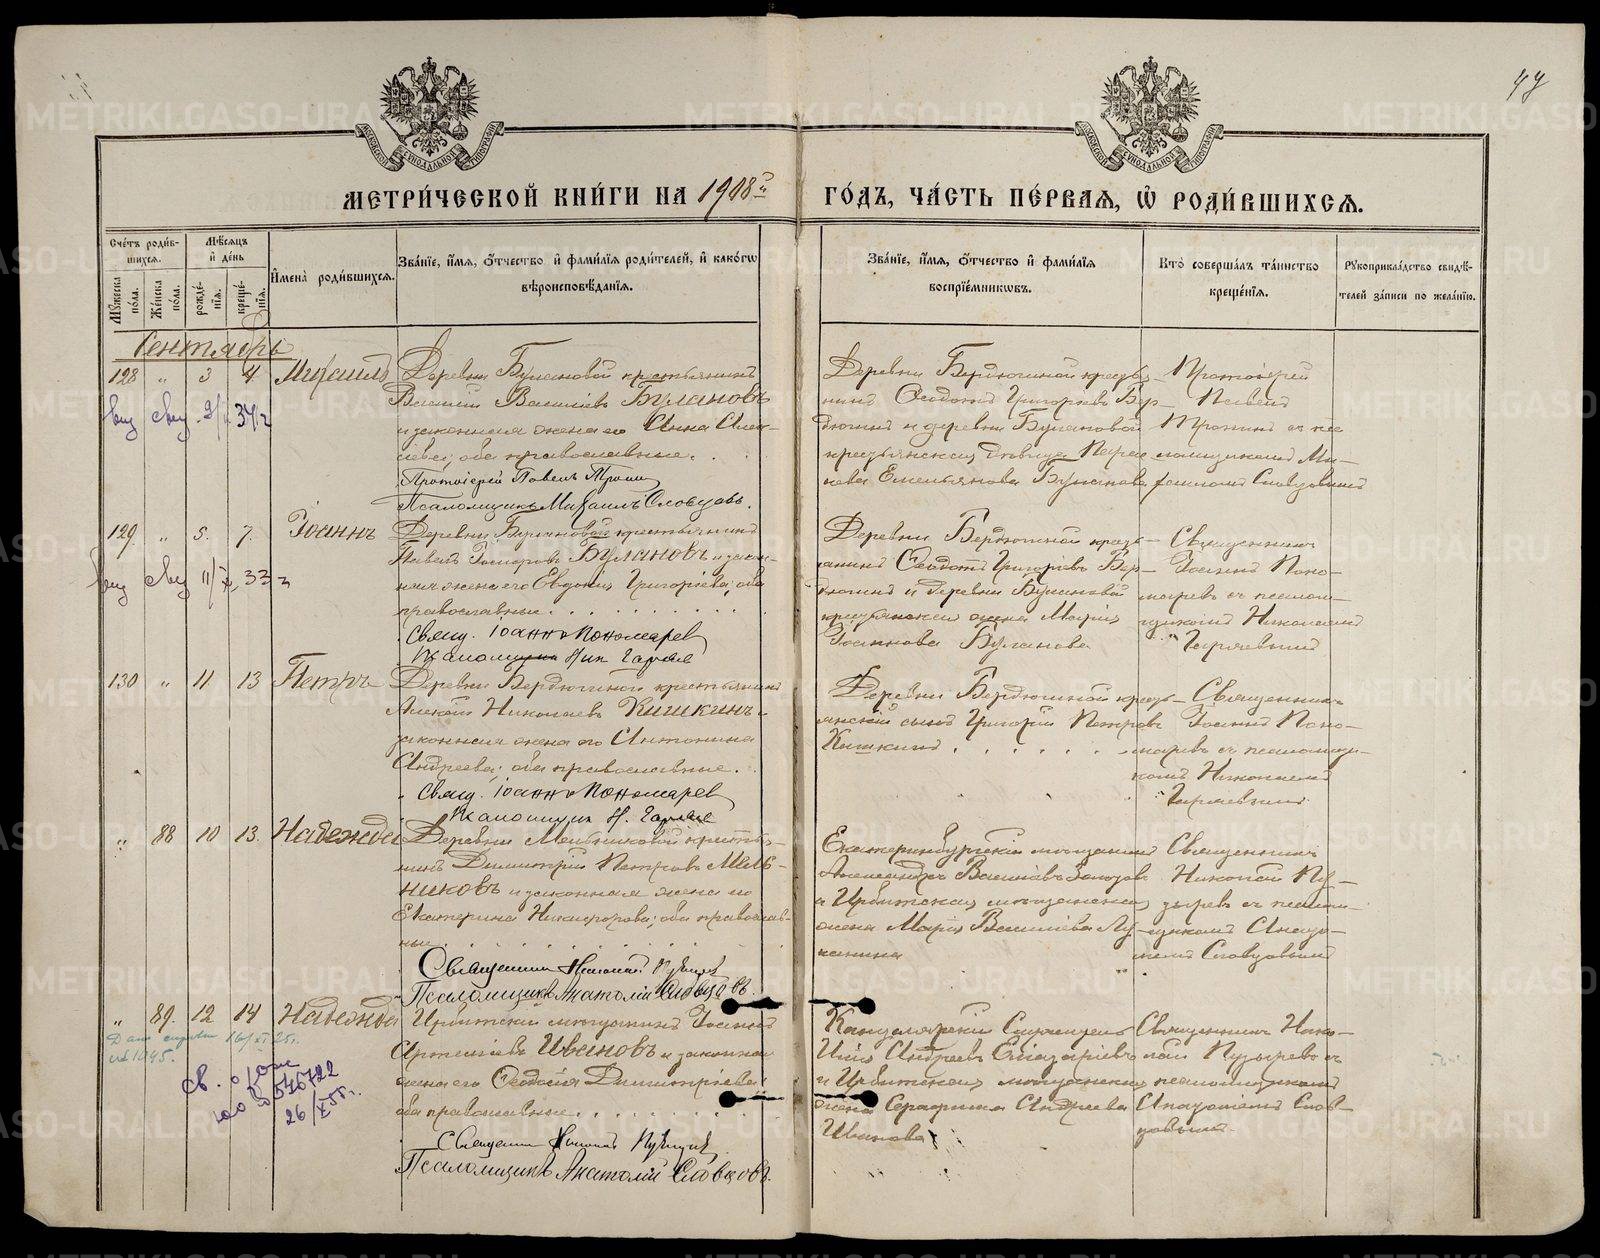 44
МЕТРИ́ЧЕСКОЙ КНИ́ГИ НА 1908й ГО́ДЪ, ЧА́СТЬ ПЕ́РВАѦ, Ѽ РОДИ́ВШИХСѦ.
Сче́тъ роди́в-
шихсѧ.
Мꙋ́жеска по́ла.
Же́нска по́ла.
Мѣ́сѧцъ и́ де́нь
рожде́-
нїѧ.
креще́-
нїѧ.
И҆мена̀ роди́вшихсѧ.
Зва́нїе, и҆́мѧ, ѻ҆́тчество и҆ фами́лїѧ роди́телей, и҆ како́гѡ
вѣроисповѣ́данїѧ.
Зва́нїе, и҆́мѧ, ѻ҆́тчество и҆ фами́лїѧ
воспрїе́мникѡвъ.
Кто̀ соверша́лъ та́инство
креще́нїѧ.
Рꙋкоприкла́дство свидѣ́-
телей за́писи по жела́нїю.
Сентябрь
128 " 3 4 Михаилъ
Деревни Булановой крестьянинъ
Василій Васильевъ Булановъ
и законная жена его Анна Алек-
сіева; оба православные.
Протоіерей Павелъ
Псаломщикъ Михаилъ Словцовъ.
Деревни Бердюгиной крестья-
нинъ Ѳеодотъ Григорьевъ Бер-
дюгинъ и деревни Булановой
крестьянская дѣвица Параскева Емельянова Буланова
Протоіерей
Павелъ
съ пса-
ломщикомъ Ми-
хаиломъ Словцовымъ
129. " 5. 7. Іоаннъ
Деревни Булановой крестьянинъ
Павелъ Булановъ и закон-
ная жена его Евдокія Григорьева; оба
православные.
Свящ. Іоаннъ Пономарев
Псаломщикъ Ник.
Деревни Бердюгиной кресть-
янинъ Ѳеодотъ Григорьевъ Бер-
дюгинъ и деревни Булановой
крестьянская жена Марія
Іоаннова Буланова
Священникъ
Іоаннъ Поно-
маревъ съ псалом-
щикомъ Николаемъ
130 " 11 13 Петръ
Деревни Бердюгиной крестьянинъ
Алексій Николаевъ Кишкинъ и
законная жена его Антонина
Андреева; оба православные.
Свящ. Іоаннъ Пономарев
Псаломщик Н.
Деревни Бердюгиной кресть-
янскій сынъ Григорій Петровъ
Кишкинъ
Священникъ
Іоаннъ Поно-
маревъ съ псаломщи-
комъ Николаемъ
" 88 10 13. Надежда
Деревни Мельниковой крестья-
нинъ Димитрій Петровъ Мель-
никовъ и законная жена его
Екатерина Никифорова; оба православ-
ные.
Священникъ Николай Пузырев
Псаломщикъ Анатолій Словцовъ.
Екатеринбургскій мѣщанинъ
Александръ Васильевъ
и Ирбитская мѣщанская
жена Марія Васильева Лу-
канина
Священникъ
Николай Пу-
зыревъ съ псалом-
щикомъ Анато-
ліемъ Словцовымъ
" 89. 12 14 Надежда
Ирбитскій мѣщанинъ Іоаннъ
Артеміевъ Ивановъ и законная
жена его Ѳеодосія Димитріева
оба православные.
Священникъ Николай Пузырев
Псаломщикъ Анатолій Словцовъ.
Канцелярскій служитель
Илія Андреевъ Елеазарьевъ
и Ирбитская мѣщанская
жена Серафима Андреева
Иванова
Священникъ Нико-
лай Пузыревъ съ
псаломщикомъ
Анатоліемъ Слов-
цовымъ.
Дана справка 16/XI 25г.
№1045.
св. о рож
546722
26/X 55г.